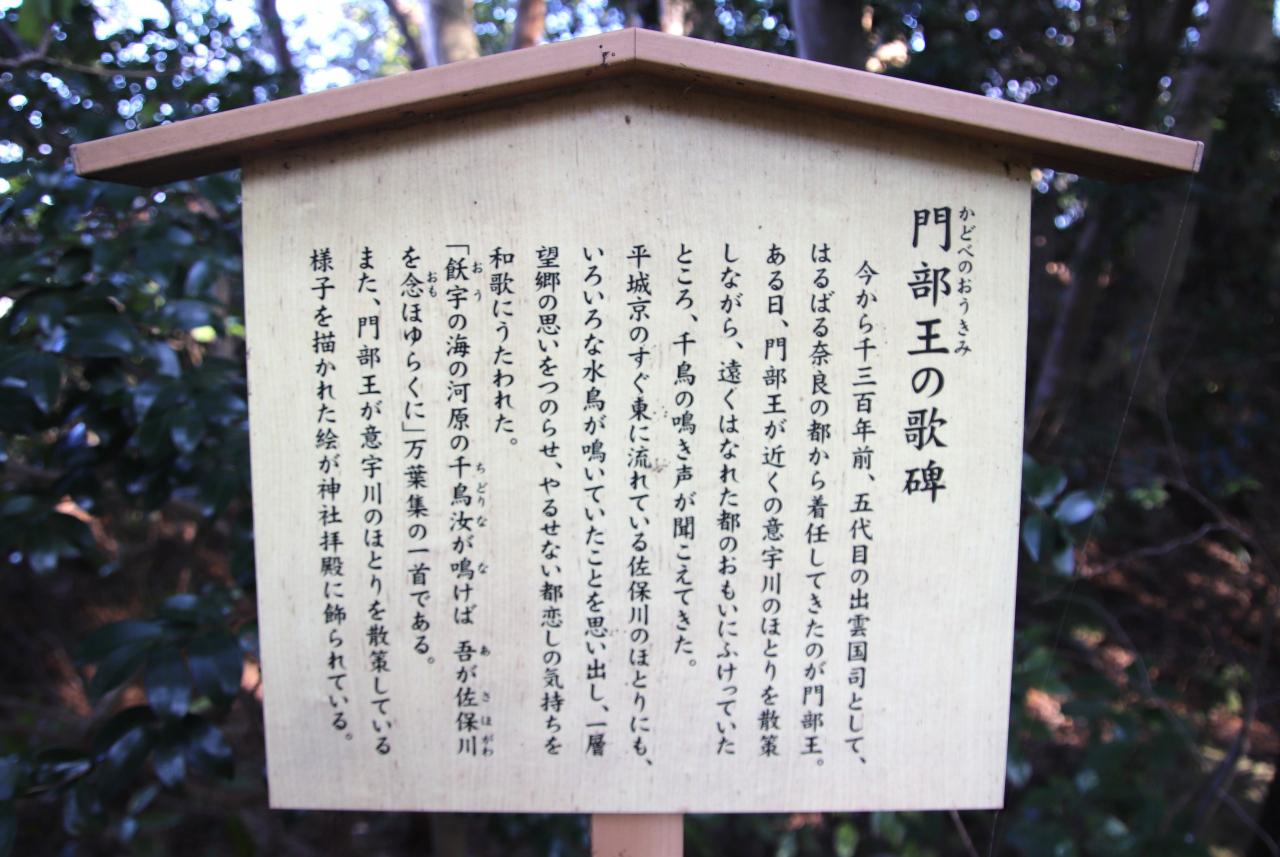 門部王の歌碑
かどべのおうきみ
今から千三百年前、五代目の出雲国司として、
はるばる奈良の都から着任してきたのが門部王。
ある日、門部王が近くの意宇川のほとりを散策
しながら、遠くはなれた都のおもいにふけっていた
ところ、千鳥の鳴き声が聞こえてきた。
平城京のすぐ東に流れている佐保川のほとりにも、
いろいろな水鳥が鳴いていたことを思い出し、一層
望郷の思いをつのらせ、やるせない都恋しの気持ちを
和歌にうたわれた。
「飫宇の海の河原の千鳥汝が鳴けば 吾が佐保川
おう ちどりな な あ さほがわ
を念ほゆらくに」万葉集の一首である。
おも
また、門部王が意宇川のほとりを散策している
様子を描かれた絵が神社拝殿に飾られている。